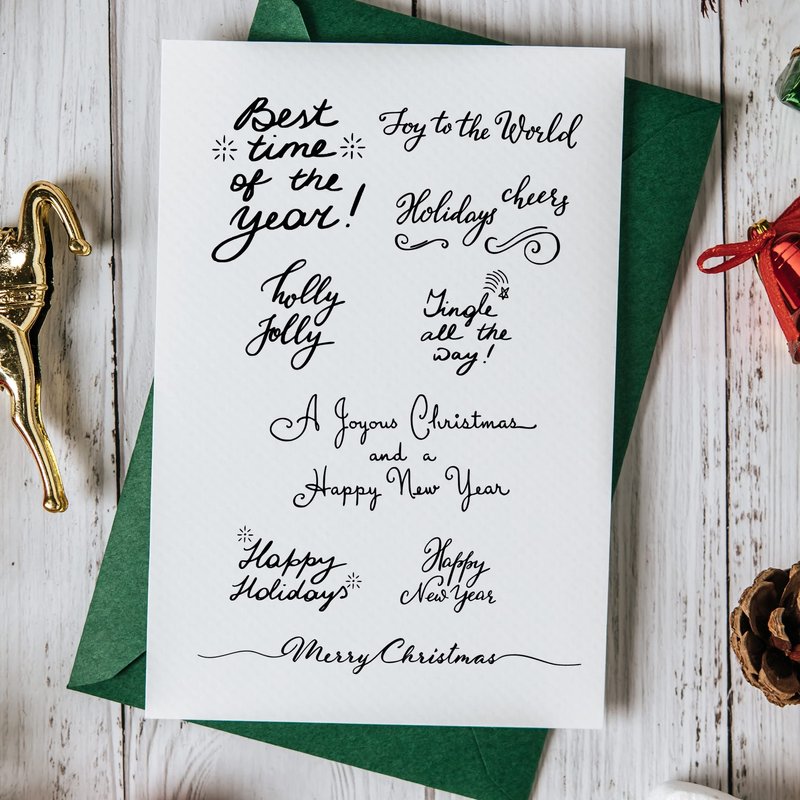 Best
time
of the
year!
Joy to the World
Holidays cheers
holly
Jolly
Jingle
all the
way!
A Joyous Christmas
and a
Happy New Year
Happy
Holidays
Happy
New Year
Merry Christmas